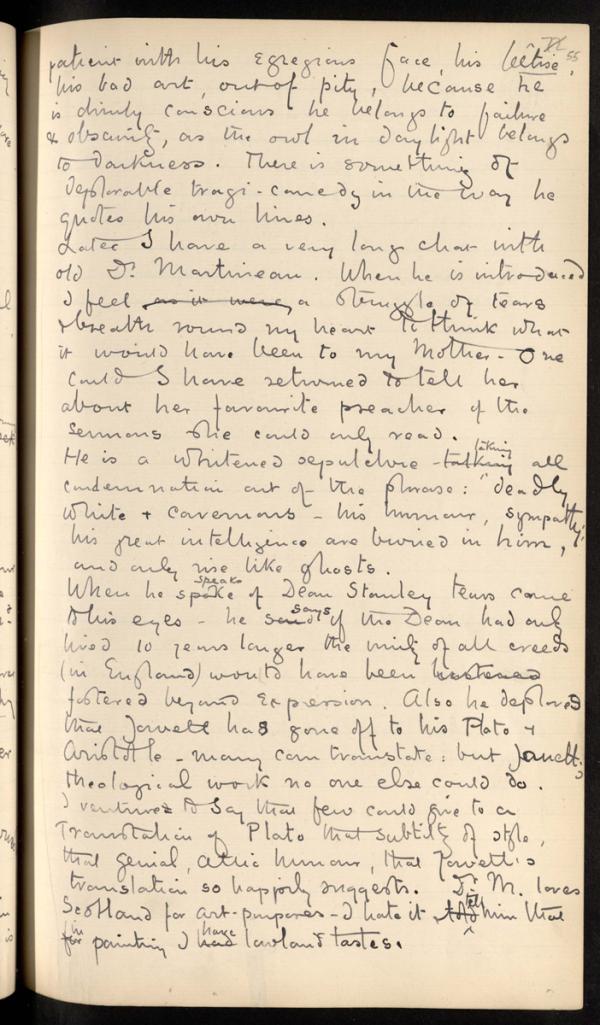 55
patient with his egregious face, his bêtise,
his bad art, out of pity, because he
is dimly conscious he belongs to failure
& obscurity, as the owl in daylight belongs
to darkness. There is something of
deplorable tragi-comedy in the way he
quotes his own lines.
Later I have a very long chat with
old Dr. Martineau. When he is introduced
I feel as it were a struggle of tears
& breath round my heart to think what
it would have been to my Mother - One
could I have returned to tell her
about her favourite preacher & the
sermons she could only read.
He is a whitened sepulchre - talking taking all
condemnation out of the phrase: deadly
white & cavernous - his humour, sympathy,
his great intelligence are buried in him,
and only rise like ghosts.
When he spoke speaks of Dean Stanley tears come
to his eyes - he said says if the Dean had only
lived 10 years longer the unity of all creeds
(in England) would have been hastened
fostered beyond expression. Also he deplores
that Jowett has gone off to his Plato &
Aristotle - many can translate: but Jowett's
theological work no one else could do.
I ventured to say that few could give to a
Translation of Plato that subtilty of style,
that genial, attic humour, that Jowett's
translation so happily suggests. Dr. M. loves
Scotland for art-purposes - I hate it told tell him that
for in painting I had have lowland tastes.